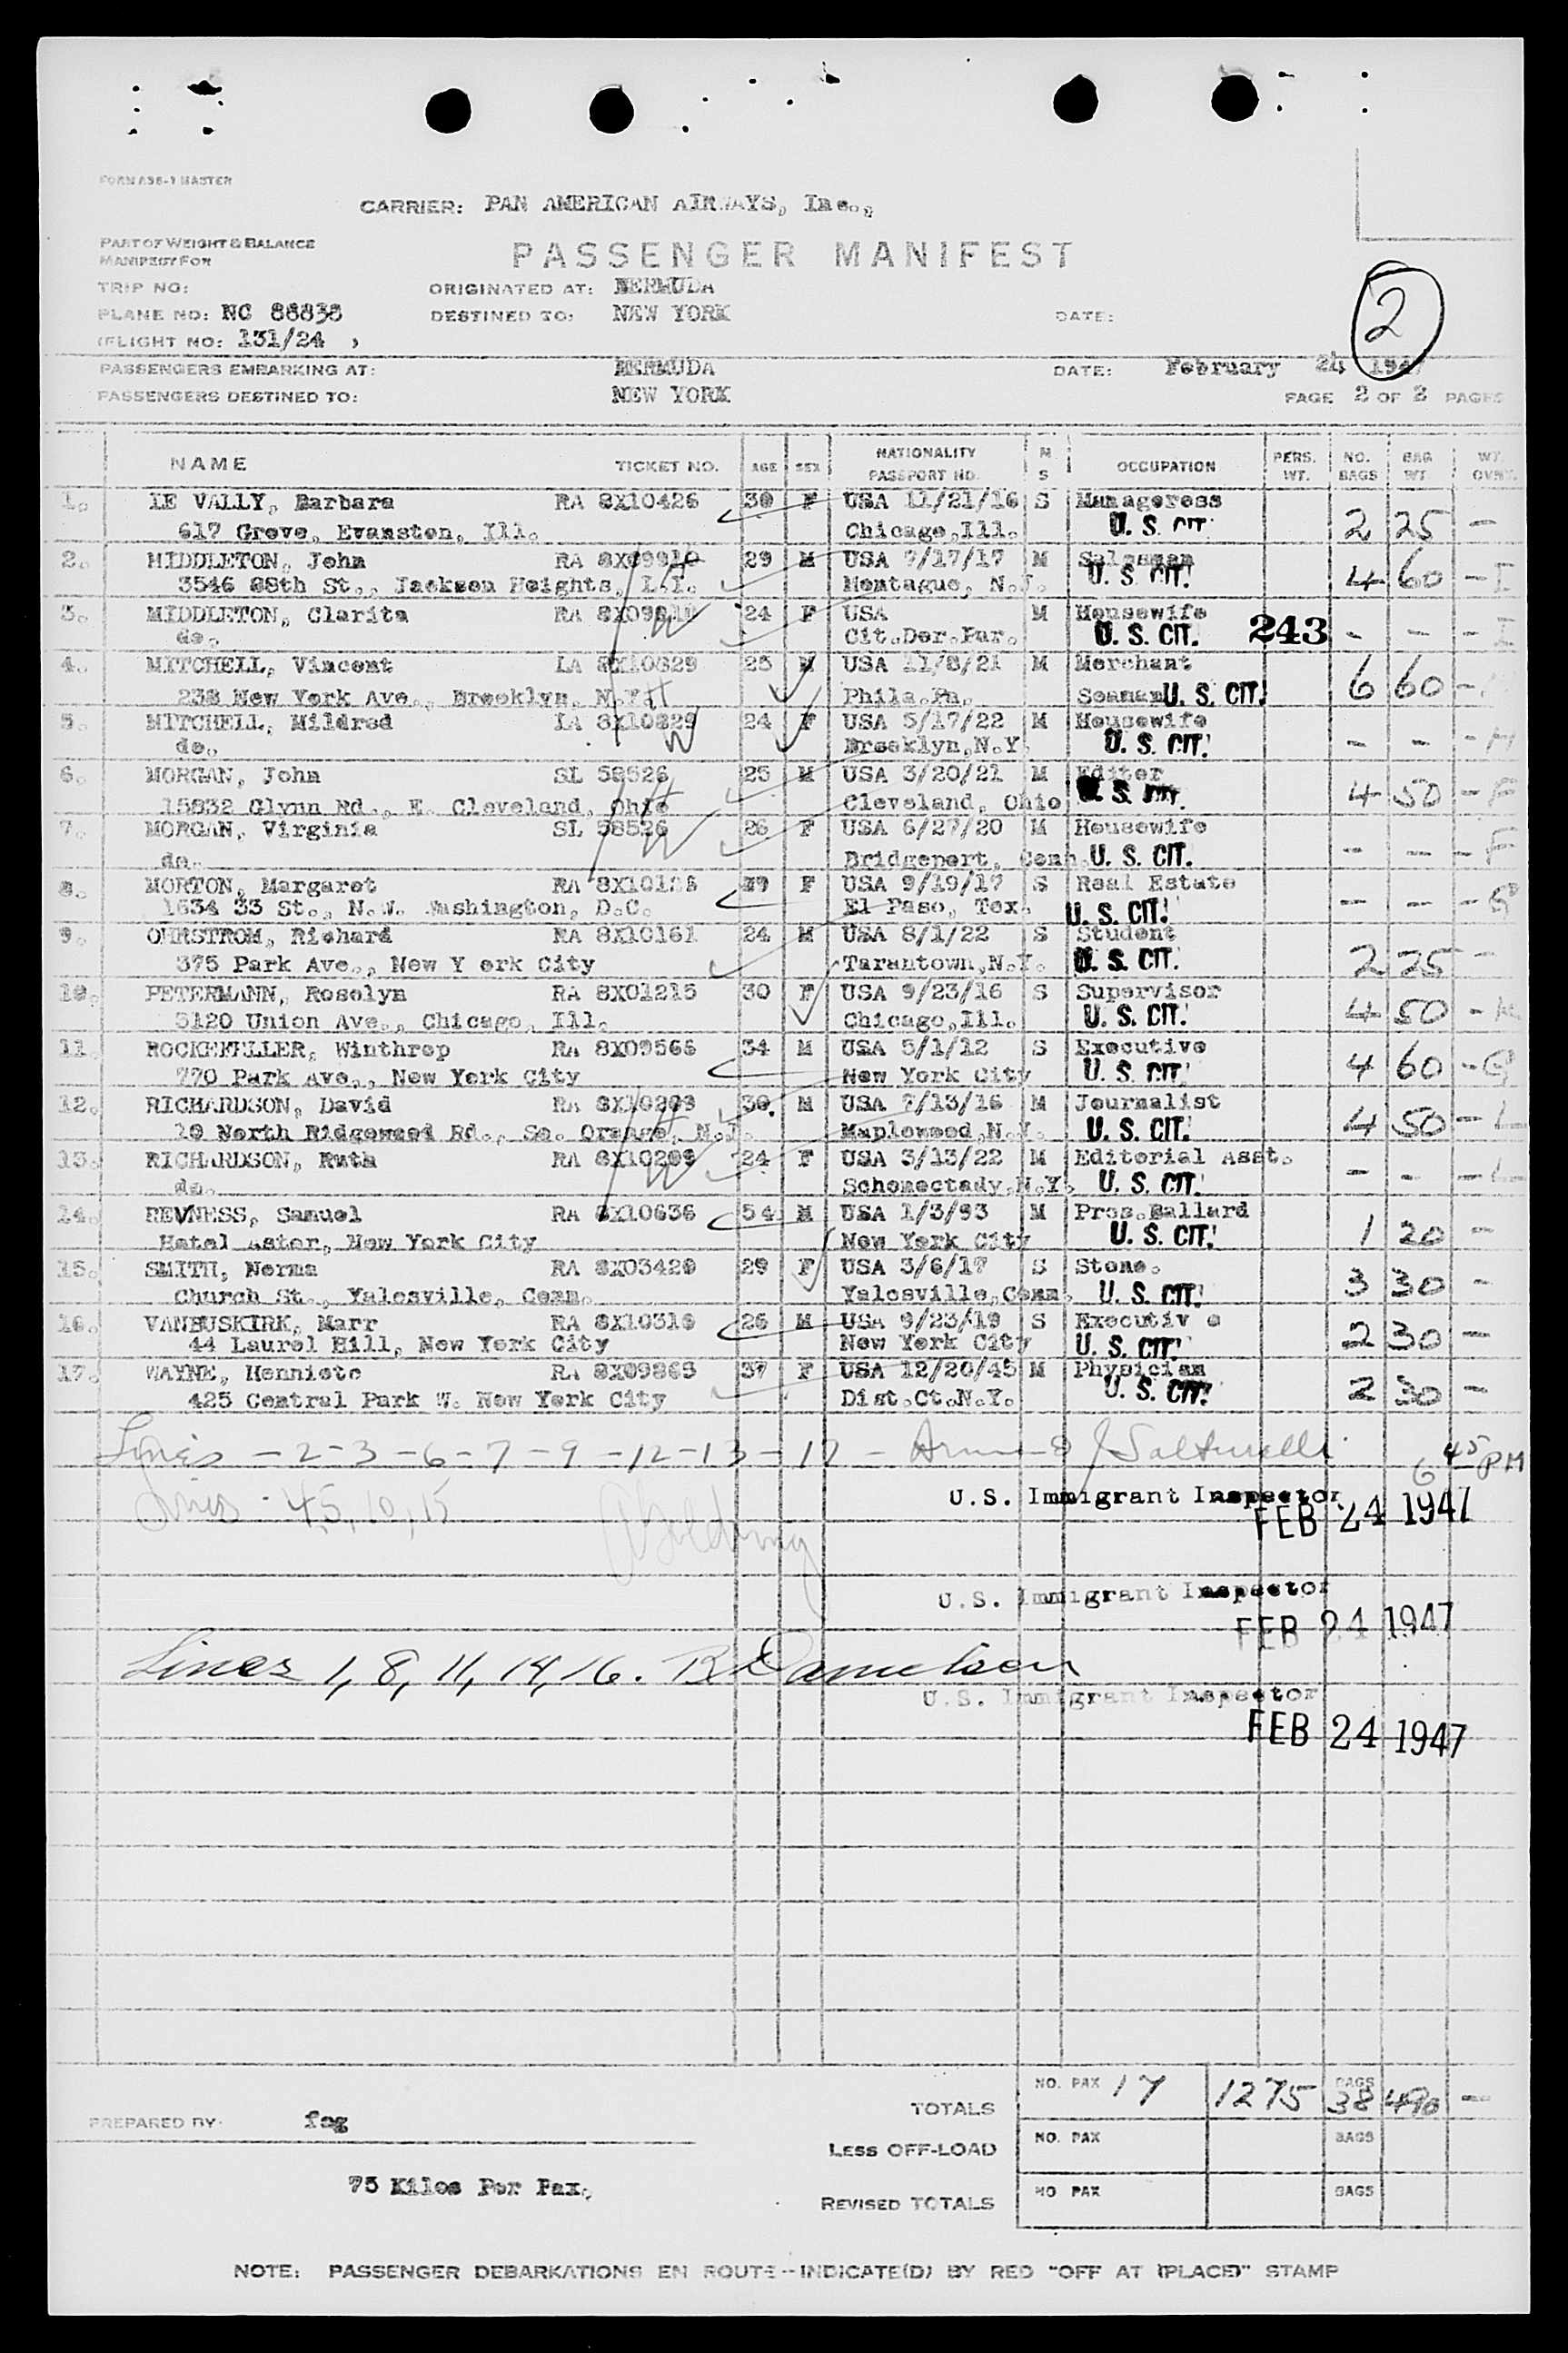 FORM ASB-1 MASTER
CARRIER: PAN AMERICAN AIRWAYS, Inc.,
PART OF WEIGHT & BALANCE
MANIFEST FOR
PASSENGER MANIFEST
TRIP NO: ORIGINATED AT: BERMUDA
PLANE NO: NC 88838 DESTINED TO: NEW YORK DATE: 2
(FLIGHT NO: 131/24 )
PASSENGERS EMBARKING AT: BERMUDA DATE: February 24 1947
PASSENGERS DESTINED TO: NEW YORK PAGE 2 OF 2 PAGES
NAME TICKET NO. AGE SEX NATIONALITY PASSPORT NO. M S OCCUPATION PERS. WT. NO. BAGS BAG WT. WT. OVWT.
1. LE VALLY, Barbara RA 8X10426 30 F USA 11/21/16 S Manageress
617 Grove, Evanston, Ill. Chicago,Ill. U. S. CIT. 2 25 -
2. MIDDLETON, John RA 8X09910 29 M USA 7/17/17 M Salesman
3546 88th St., Jackson Heights, L.I. Montague, N.J. U. S. CIT. 4 60 - I
3. MIDDLETON, Clarita RA 8X09910 24 F USA M Housewife
do. Cit.Der.Par. U. S. CIT. 243 - - - I
4. MITCHELL, Vincent LA 8X10829 25 M USA 11/8/21 M Merchant
238 New York Ave., Brooklyn, N.Y. Phila.Pa. Seaman U. S. CIT. 6 60 -
5. MITCHELL, Mildred LA 8X10829 24 F USA 5/17/22 M Housewife
do. Brooklyn,N.Y. U. S. CIT. - - - H
6. MORGAN, John SL 58526 25 M USA 3/20/21 M Editor
15832 Glynn Rd., E. Cleveland, Ohio Cleveland, Ohio U. S. CIT. 4 50 - F
7. MORGAN, Virginia SL 58526 26 F USA 6/27/20 M Housewife
do. Bridgeport, Conn. U. S. CIT. - - - F
8. MORTON, Margaret RA 29 F USA 9/19/17 S Real Estate
1634 33 St., N.W. Washington, D.C. El Paso, Tex. U. S. CIT. - - - G
9. OHRSTROM, Richard RA 8X10161 24 M USA 8/1/22 S Student
375 Park Ave., New Y ork City Tarantown,N.Y. U. S. CIT. 2 25 -
10. PETERMANN, Roselyn RA 8X01215 30 F USA 9/23/16 S Supervisor
5120 Union Ave., Chicago, Ill. Chicago,Ill. U. S. CIT. 4 50 -
11. ROCKEFELLER, Winthrop RA 8X09566 34 M USA 5/1/12 S Executive
770 Park Ave., New York City New York City U. S. CIT. 4 60 - G
12. RICHARDSON, David RA 8X10209 30. M USA 7/13/16 M Journalist
19 North Ridgewood Rd., So. Orange, N.J. Maplewood,N.Y. U. S. CIT. 4 50 - L
13. RICHARDSON, Ruth RA 8X10209 24 F USA 3/13/22 M Editorial Asst.
do. Schenectady,N.Y. U. S. CIT. - - - L
14. REVNESS, Samuel RA 8X10636 54 M USA 1/3/93 M Pres.Ballard
Hotel Astor, New York City New York City U. S. CIT. 1 20 -
15. SMITH, Norma RA 8X03420 29 F USA 3/6/17 S Stone.
Church St., Yalesville, Conn. Yalesville,Conn. U. S. CIT. 3 30 -
16. VANBUSKIRK, Marr RA 8X10316 26 M USA 9/23/19 S Executiv e
44 Laurel Hill, New York City New York City U. S. CIT. 2 30 -
17. WAYNE, Henniete RA 8X09863 37 F USA 12/20/45 M Physician
425 Central Park W. New York City Dist.Ct.N.Y. U. S. CIT. 2 30 -
Lines - 2 - 3 - 6 - 7 - 9 - 12 - 13 - 17 - 6 45 PM
Lines - 4,5, 10, 15 U.S. Immigrant Inspector
FEB 24 1947
U.S. Immigrant Inspector
FEB 24 1947
Lines 1, 8, 11, 14, 16. R Danielson
U.S. Immigrant Inspector
FEB 24 1947
TOTALS NO. PAX 17 1275 BAGS 38 490 -
PREPARED BY: fog
LESS OFF-LOAD NO. PAX BAGS
75 Kilos Per Pax.
REVISED TOTALS NO PAX BAGS
NOTE: PASSENGER DEBARKATIONS EN ROUTE--INDICATE(D) BY RED "OFF AT (PLACE)" STAMP